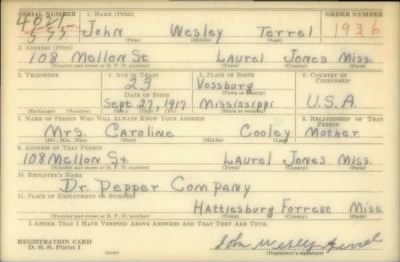 SERIAL NUMBER 1. NAME (Print) ORDER NUMBER
John Wesley Terrel 1936
(First) (Middle) (Last)
2. ADDRESS (Print)
108 Mellon St. Laurel Jones Miss.
(Number and street or R. F. D. number) (Town) (County) (State)
3. TELEPHONE 4. AGE IN YEARS 5. PLACE OF BIRTH 6. COUNTRY OF CITIZENSHIP
23 Vossburg
DATE OF BIRTH (Town or county)
Sept. 27, 1917 Mississippi U.S.A.
(Exchange) (Number) (Mo.) (Day) (Yr.) (State or country)
7. NAME OF PERSON WHO WILL ALWAYS KNOW YOUR ADDRESS 8. RELATIONSHIP OF THAT PERSON
Mrs. Caroline Cooley Mother
(Mr., Mrs., Miss) (First) (Middle) (Last)
9. ADDRESS OF THAT PERSON
108 Mellon St. Laurel Jones Miss.
(Number and street or R. F. D. number) (Town) (County) (State)
10. EMPLOYER'S NAME
Dr. Pepper Company
11. PLACE OF EMPLOYMENT OR BUSINESS
Hattiesburg Forrest Miss.
(Number and street or R. F. D. number) (Town) (County) (State)
I AFFIRM THAT I HAVE VERIFIED ABOVE ANSWERS AND THAT THEY ARE TRUE.
REGISTRATION CARD John Wesley Terrel
D. S. S. Form 1 (Registrar's signature)